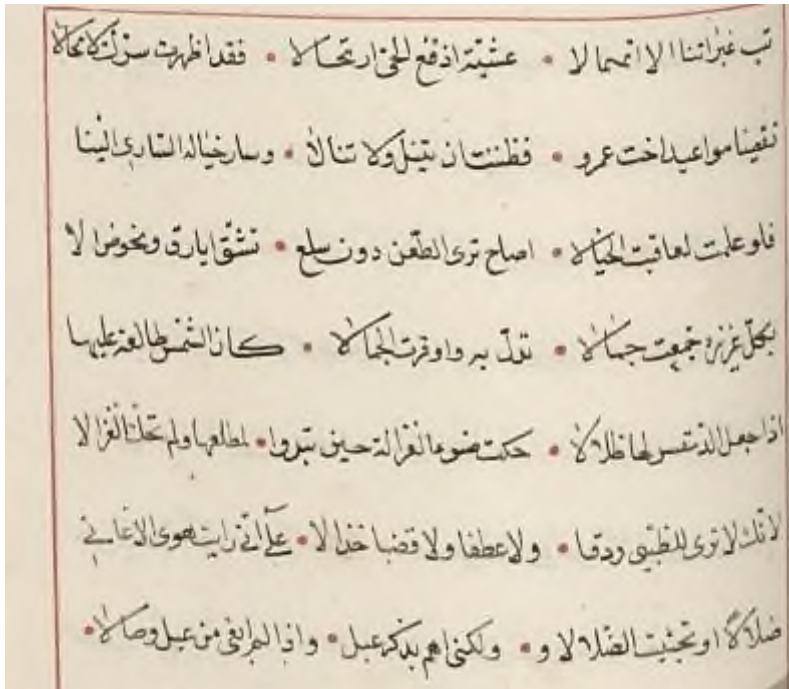 تب عبراتنا الا انهمالا • عشيّة اذ فع الحيّ ارتحالا • فقد اظهرت سرّك لا محالا
نقينا مواعيد اخت عمرو • فظننت ان تنيل ولا تنالا • وسار خياله السّاري الينا
فلو علمت لعاقبت الخيالا • اصاح ترى الظّعن دون سلع • تشقّ ابارق وتخوض الا
بكلّ غريزة جمعت جمالا • تدلّ به واوقرت الجمالا • كان الشّمس طالعة عليها
اذا جعل الدّمقس لها ظلالا • حكت ضوء الغزالة حين تبدوا • لمطلعها ولم تحك الغزالا
لانّك لا ترى للظّبي ردفا • ولا عطفا ولا قصبا خدالا • على انّي رايت هوى الاغاني
ضلالا او تجنّبت الضّلالا و • ولكنى اهم بذكر عبل • واذا لم ابغى من عبل وصالا •